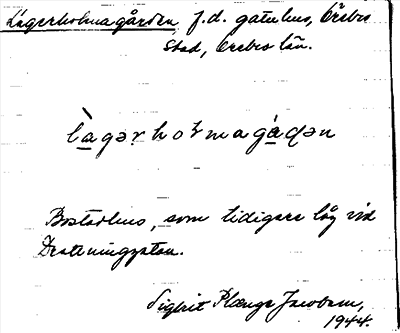 Lägerholmagården, f.d. gatuhus, Örebro
stad, Örebro län.
làgərholmagádən
Bostadhus, som tidigare låg vid
Drottninggatan.
Sigbrit Plænge Jacobson,
1944.